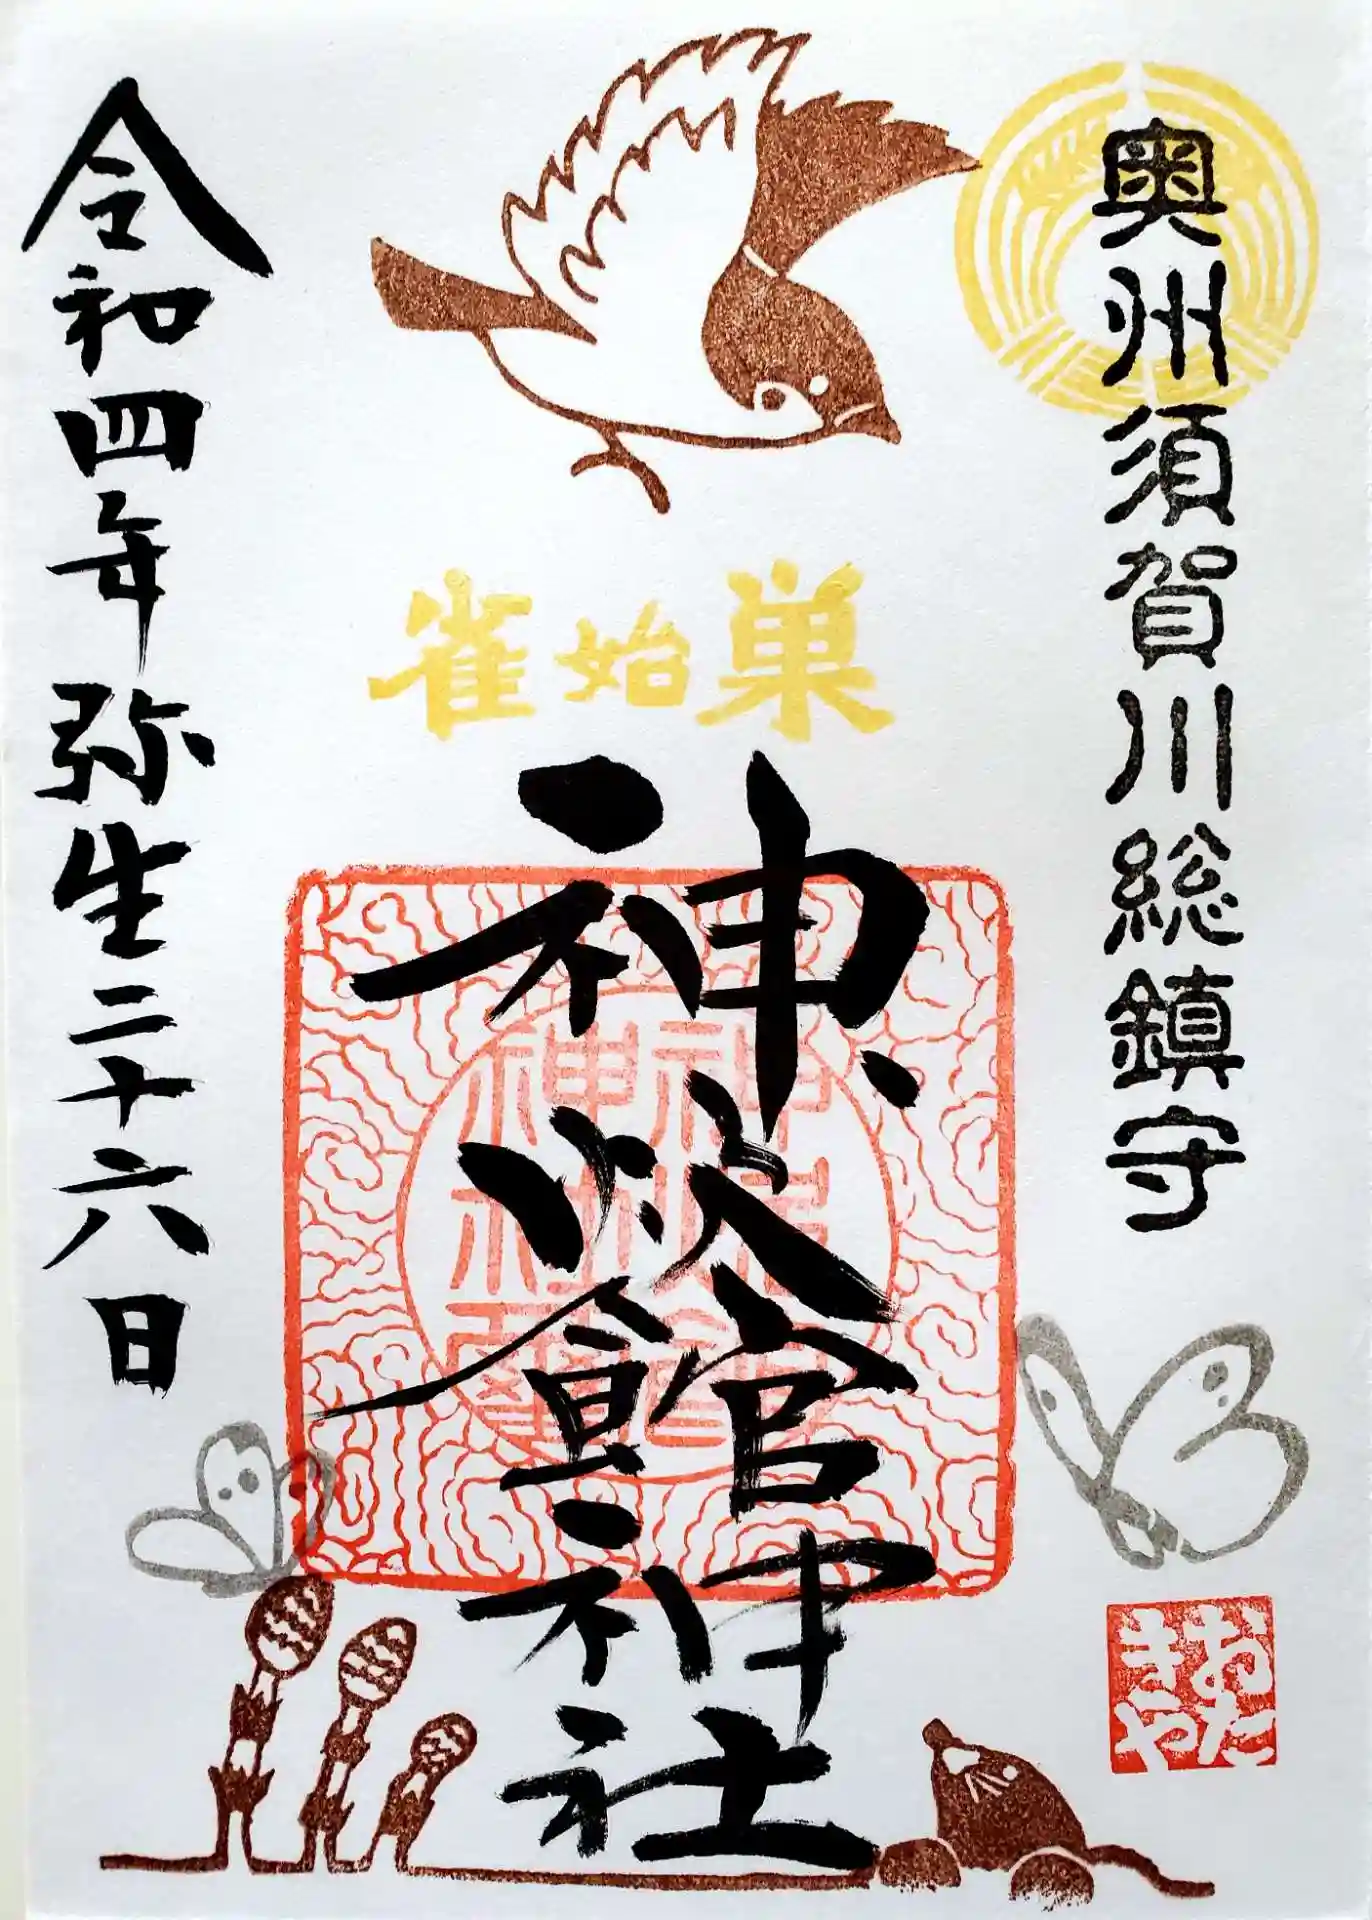 奥州須賀川総鎮守
雀始巣
神炊館神社
令和四年弥生二十六日
おた
きや